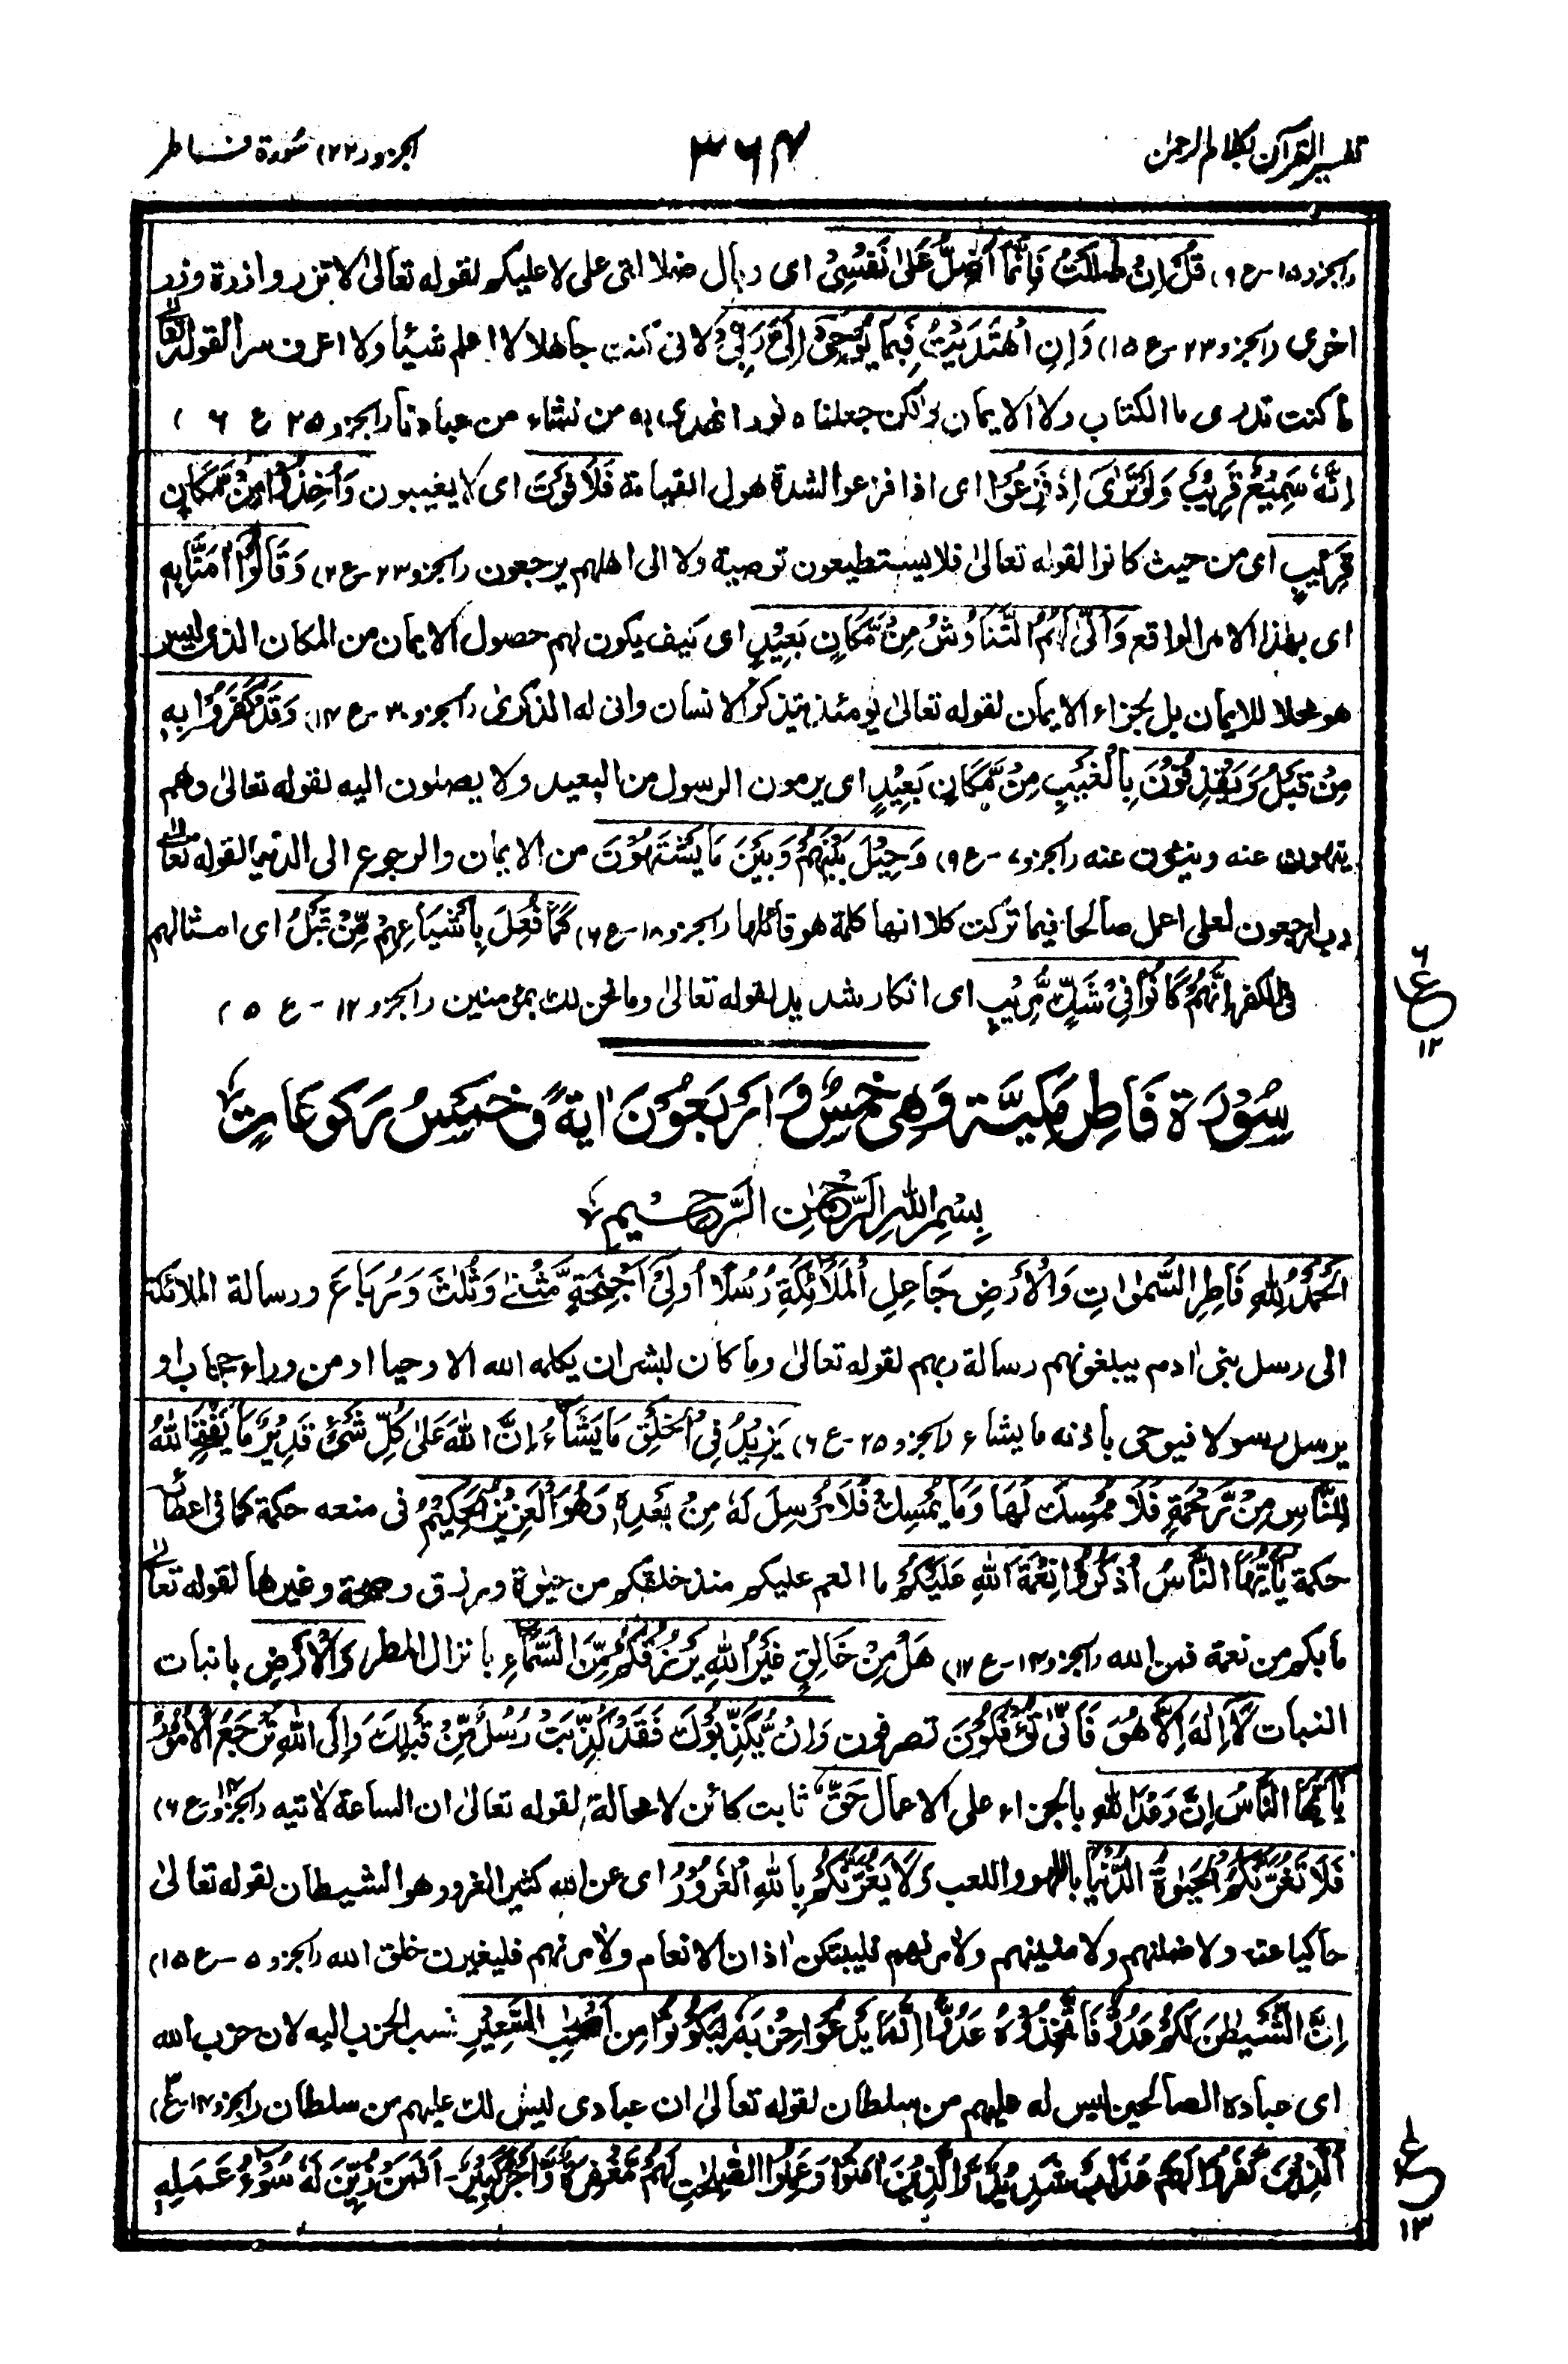 تفسير القرآن بكلام الرحمٰن
٣٦٤
الجزو (٢٢) سُورة فاطر
(الجزو ١٥-ع ٩) قُلْ اِنْ ضَلَلْتُ فَاِنَّمَا اَضِلُّ عَلٰى نَفْسِىْ اى وبال ضلالتى على لا عليكم لقوله تعالىٰ لا تزر وازرة وزر
اخرى (الجزو ٢٣-ع ١٥) وَاِنِ اهْتَدَيْتُ فَبِمَا يُوْحِىْ اِلَىَّ رَبِّىْ لانى كنت جاهلا لا اعلم شيئا ولا اعرف سرا لقوله تعالىٰ
ما كنت تدرى ما الكتاب ولا الايمان ولكن جعلناه نورا نهدى به من نشاء من عبادنا (الجزو ٢٥ ع ٦)
اِنَّهٗ سَمِيْعٌ قَرِيْبٌ وَلَوْ تَرٰىٓ اِذْ فَزِعُوْا اى اذا فزعوا لشدة هول القيامة فَلَا فَوْتَ اى لا يغيبون وَاُخِذُوْا مِنْ مَّكَانٍ
قَرِيْبٍ اى من حيث كانوا لقوله تعالىٰ فلا يستطيعون توصية ولا الى اهلهم يرجعون (الجزو ٢٣-ع ٢) وَقَالُوْٓا اٰمَنَّا بِهٖ
اى بهٰذا الامر الواقع وَاَنّٰى لَهُمُ التَّنَاوُشُ مِنْ مَّكَانٍ بَعِيْدٍ اى كيف يكون لهم حصول الايمان من المكان الذى ليس
هو محلا للايمان بل لجزاء الايمان لقوله تعالىٰ يومئذ يتذكر الانسان وانى له الذكرىٰ (الجزو ٣٠-ع ١٤) وَقَدْ كَفَرُوْا بِهٖ
مِنْ قَبْلُ وَيَقْذِفُوْنَ بِالْغَيْبِ مِنْ مَّكَانٍ بَعِيْدٍ اى يرمون الرسول من البعيد ولا يصلون اليه لقوله تعالىٰ وهم
ينهون عنه وينئون عنه (الجزو ٧-ع ٩) وَحِيْلَ بَيْنَهُمْ وَبَيْنَ مَا يَشْتَهُوْنَ من الايمان والرجوع الى الدنيا لقوله تعالىٰ
رب ارجعون لعلى اعمل صالحا فيما تركت كلا انها كلمة هو قائلها (الجزو ١٨-ع ٦) كَمَا فُعِلَ بِاَشْيَاعِهِمْ مِّنْ قَبْلُ اى امثالهم
فى الكفر اِنَّهُمْ كَانُوْا فِىْ شَكٍّ مُّرِيْبٍ اى انكار شديد لقوله تعالىٰ وما نحن لك بمؤمنين (الجزو ١٢-ع ٥)
٦
ع
١٢
سُوْرَة فَاطِر مَكِيَّة وَّهِىَ خَمْسٌ وَّاَرْبَعُوْنَ اٰيَةً وَّخَمْسُ رَكُوعَاتٍ
بِسْمِ اللهِ الرَّحْمٰنِ الرَّحِيْمِ
اَلْحَمْدُ لِلّٰهِ فَاطِرِ السَّمٰوَاتِ وَالْاَرْضِ جَاعِلِ الْمَلَائِكَةِ رُسُلًا اُولِىْٓ اَجْنِحَةٍ مَّثْنٰى وَثُلٰثَ وَرُبَاعَ ورسالة الملائكة
الى رسل بنى اٰدم يبلغونهم رسالة ربهم لقوله تعالىٰ وما كان لبشر ان يكلمه الله الا وحيا او من وراء حجاب او
يرسل رسولا فيوحى باذنه ما يشاء (الجزو ٢٥-ع ٦) يَزِيْدُ فِى الْخَلْقِ مَا يَشَاءُ اِنَّ اللهَ عَلٰى كُلِّ شَىْءٍ قَدِيْرٌ مَا يَفْتَحِ اللهُ
لِلنَّاسِ مِنْ رَّحْمَةٍ فَلَا مُمْسِكَ لَهَا وَمَا يُمْسِكْ فَلَا مُرْسِلَ لَهٗ مِنْ بَعْدِهٖ وَهُوَ الْعَزِيْزُ الْحَكِيْمُ فى منعه حكمة كما فى اعطائه
حكمة يٰٓاَيُّهَا النَّاسُ اذْكُرُوْا نِعْمَةَ اللهِ عَلَيْكُمْ ما انعم عليكم منذ خلقكم من حيٰوة ورزق وصحة وغيرها لقوله تعالىٰ
ما بكم من نعمة فمن الله (الجزو ١٤-ع ١٣) هَلْ مِنْ خَالِقٍ غَيْرُ اللهِ يَرْزُقُكُمْ مِّنَ السَّمَاءِ بانزال المطر وَالْاَرْضِ بانبات
النبات لَآ اِلٰهَ اِلَّا هُوَ فَاَنّٰى تُؤْفَكُوْنَ تصرفون وَاِنْ يُّكَذِّبُوْكَ فَقَدْ كُذِّبَتْ رُسُلٌ مِّنْ قَبْلِكَ وَاِلَى اللهِ تُرْجَعُ الْاُمُوْرُ
يٰٓاَيُّهَا النَّاسُ اِنَّ وَعْدَ اللهِ بالجزاء على الاعمال حَقٌّ ثابت كائن لا محالة لقوله تعالىٰ ان الساعة لاٰتيه (الجزو ١٤-ع ٦)
فَلَا تَغُرَّنَّكُمُ الْحَيٰوةُ الدُّنْيَا باللهو واللعب وَلَا يَغُرَّنَّكُمْ بِاللهِ الْغَرُوْرُ اى عن الله كثير الغرور هو الشيطان لقوله تعالىٰ
حاكيا عنه ولاضلنهم ولامنينهم ولاٰمرنهم فليبتكن اٰذان الانعام ولاٰمرنهم فليغيرن خلق الله (الجزو ٥-ع ١٥)
اِنَّ الشَّيْطٰنَ لَكُمْ عَدُوٌّ فَاتَّخِذُوْهُ عَدُوًّا اِنَّمَا يَدْعُوْا حِزْبَهٗ لِيَكُوْنُوْا مِنْ اَصْحٰبِ السَّعِيْرِ نسب الحزب اليه لان حزب الله
اى عباده الصالحين ليس له عليهم من سلطان لقوله تعالىٰ ان عبادى ليس لك عليهم من سلطان (الجزو ١٤-ع ٣)
اَلَّذِيْنَ كَفَرُوْا لَهُمْ عَذَابٌ شَدِيْدٌ وَالَّذِيْنَ اٰمَنُوْا وَعَمِلُوا الصّٰلِحٰتِ لَهُمْ مَّغْفِرَةٌ وَّاَجْرٌ كَبِيْرٌ۔ اَفَمَنْ زُيِّنَ لَهٗ سُوْءُ عَمَلِهٖ
١
ع
١٣